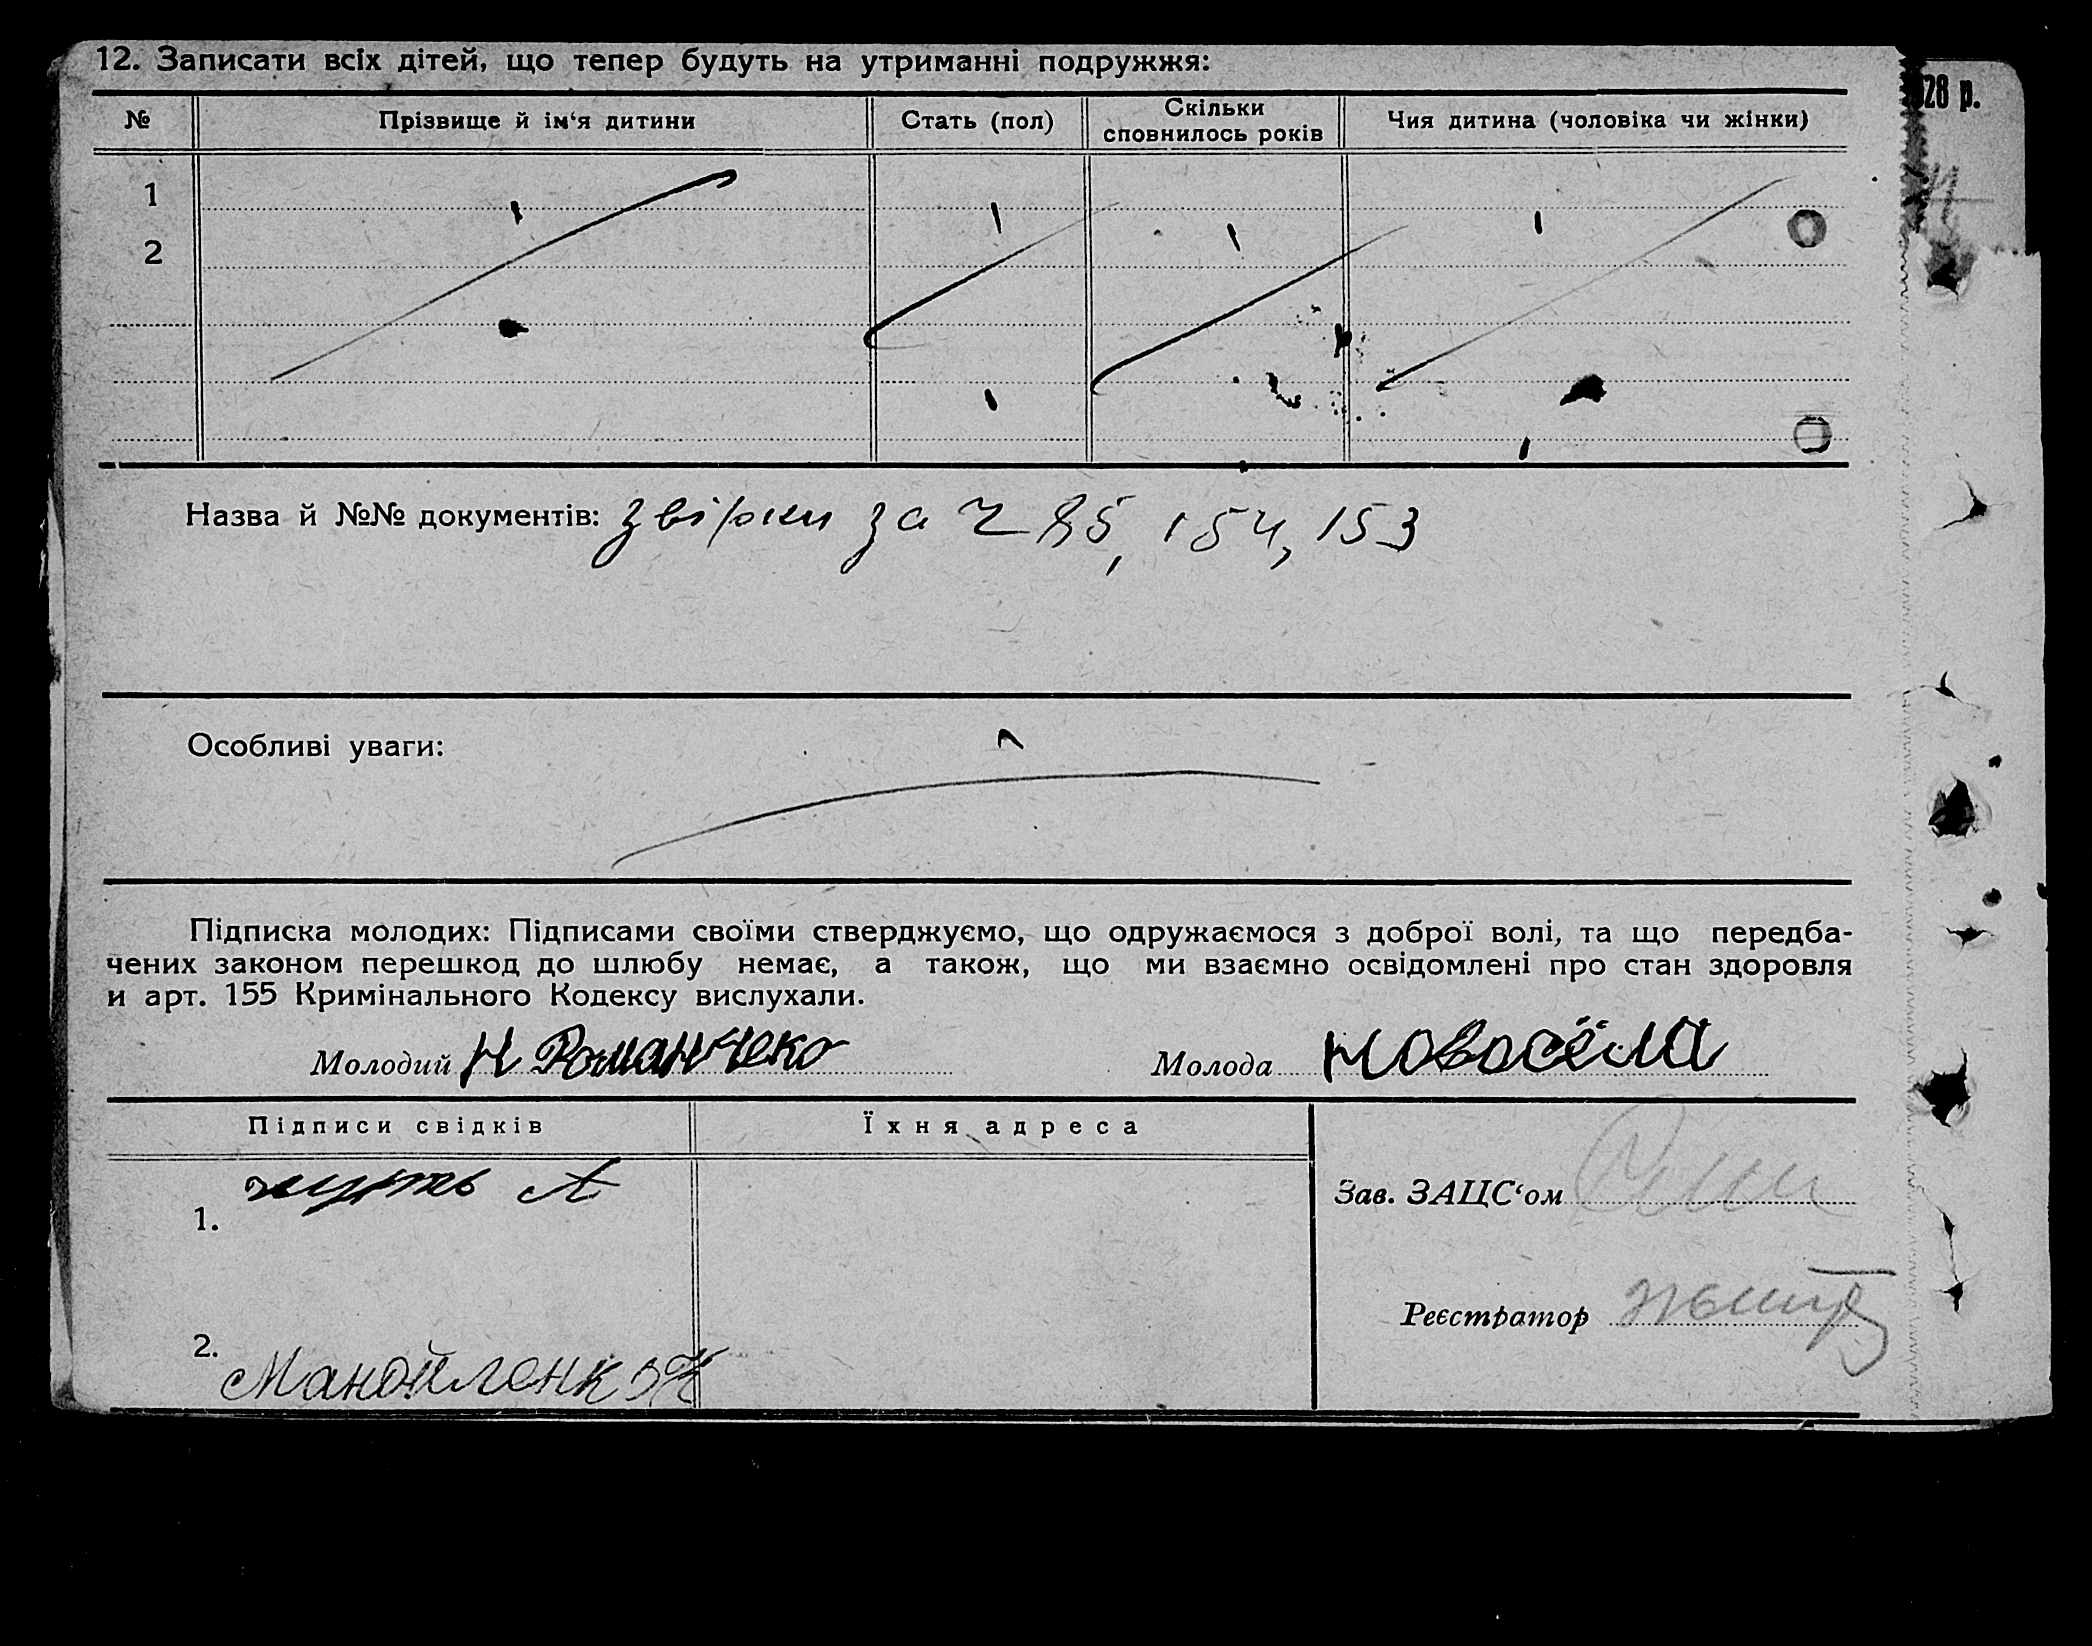 12. Записати всіх дітей, що тепер будуть на утриманні подружжя:
28 р.
№ Прізвище й ім‘я дитини Стать (пол) Скільки сповнилось років Чия дитина (чоловіка чи жінки)
1
2
Назва й №№ документів: звірки за ч 85, 154, 153
Особливі уваги:
Підписка молодих: Підписами своїми стверджуємо, що одружаємося з доброї волі, та що передба-
чених законом перешкод до шлюбу немає, а також, що ми взаємно освідомлені про стан здоровля
и арт. 155 Кримінального Кодексу вислухали.
Молодий Н Романчеко Молода Новосёла
Підписи свідків Їхня адреса
1. А
Зав. ЗАЦС‘ом
Реєстратор
2. Манойленк